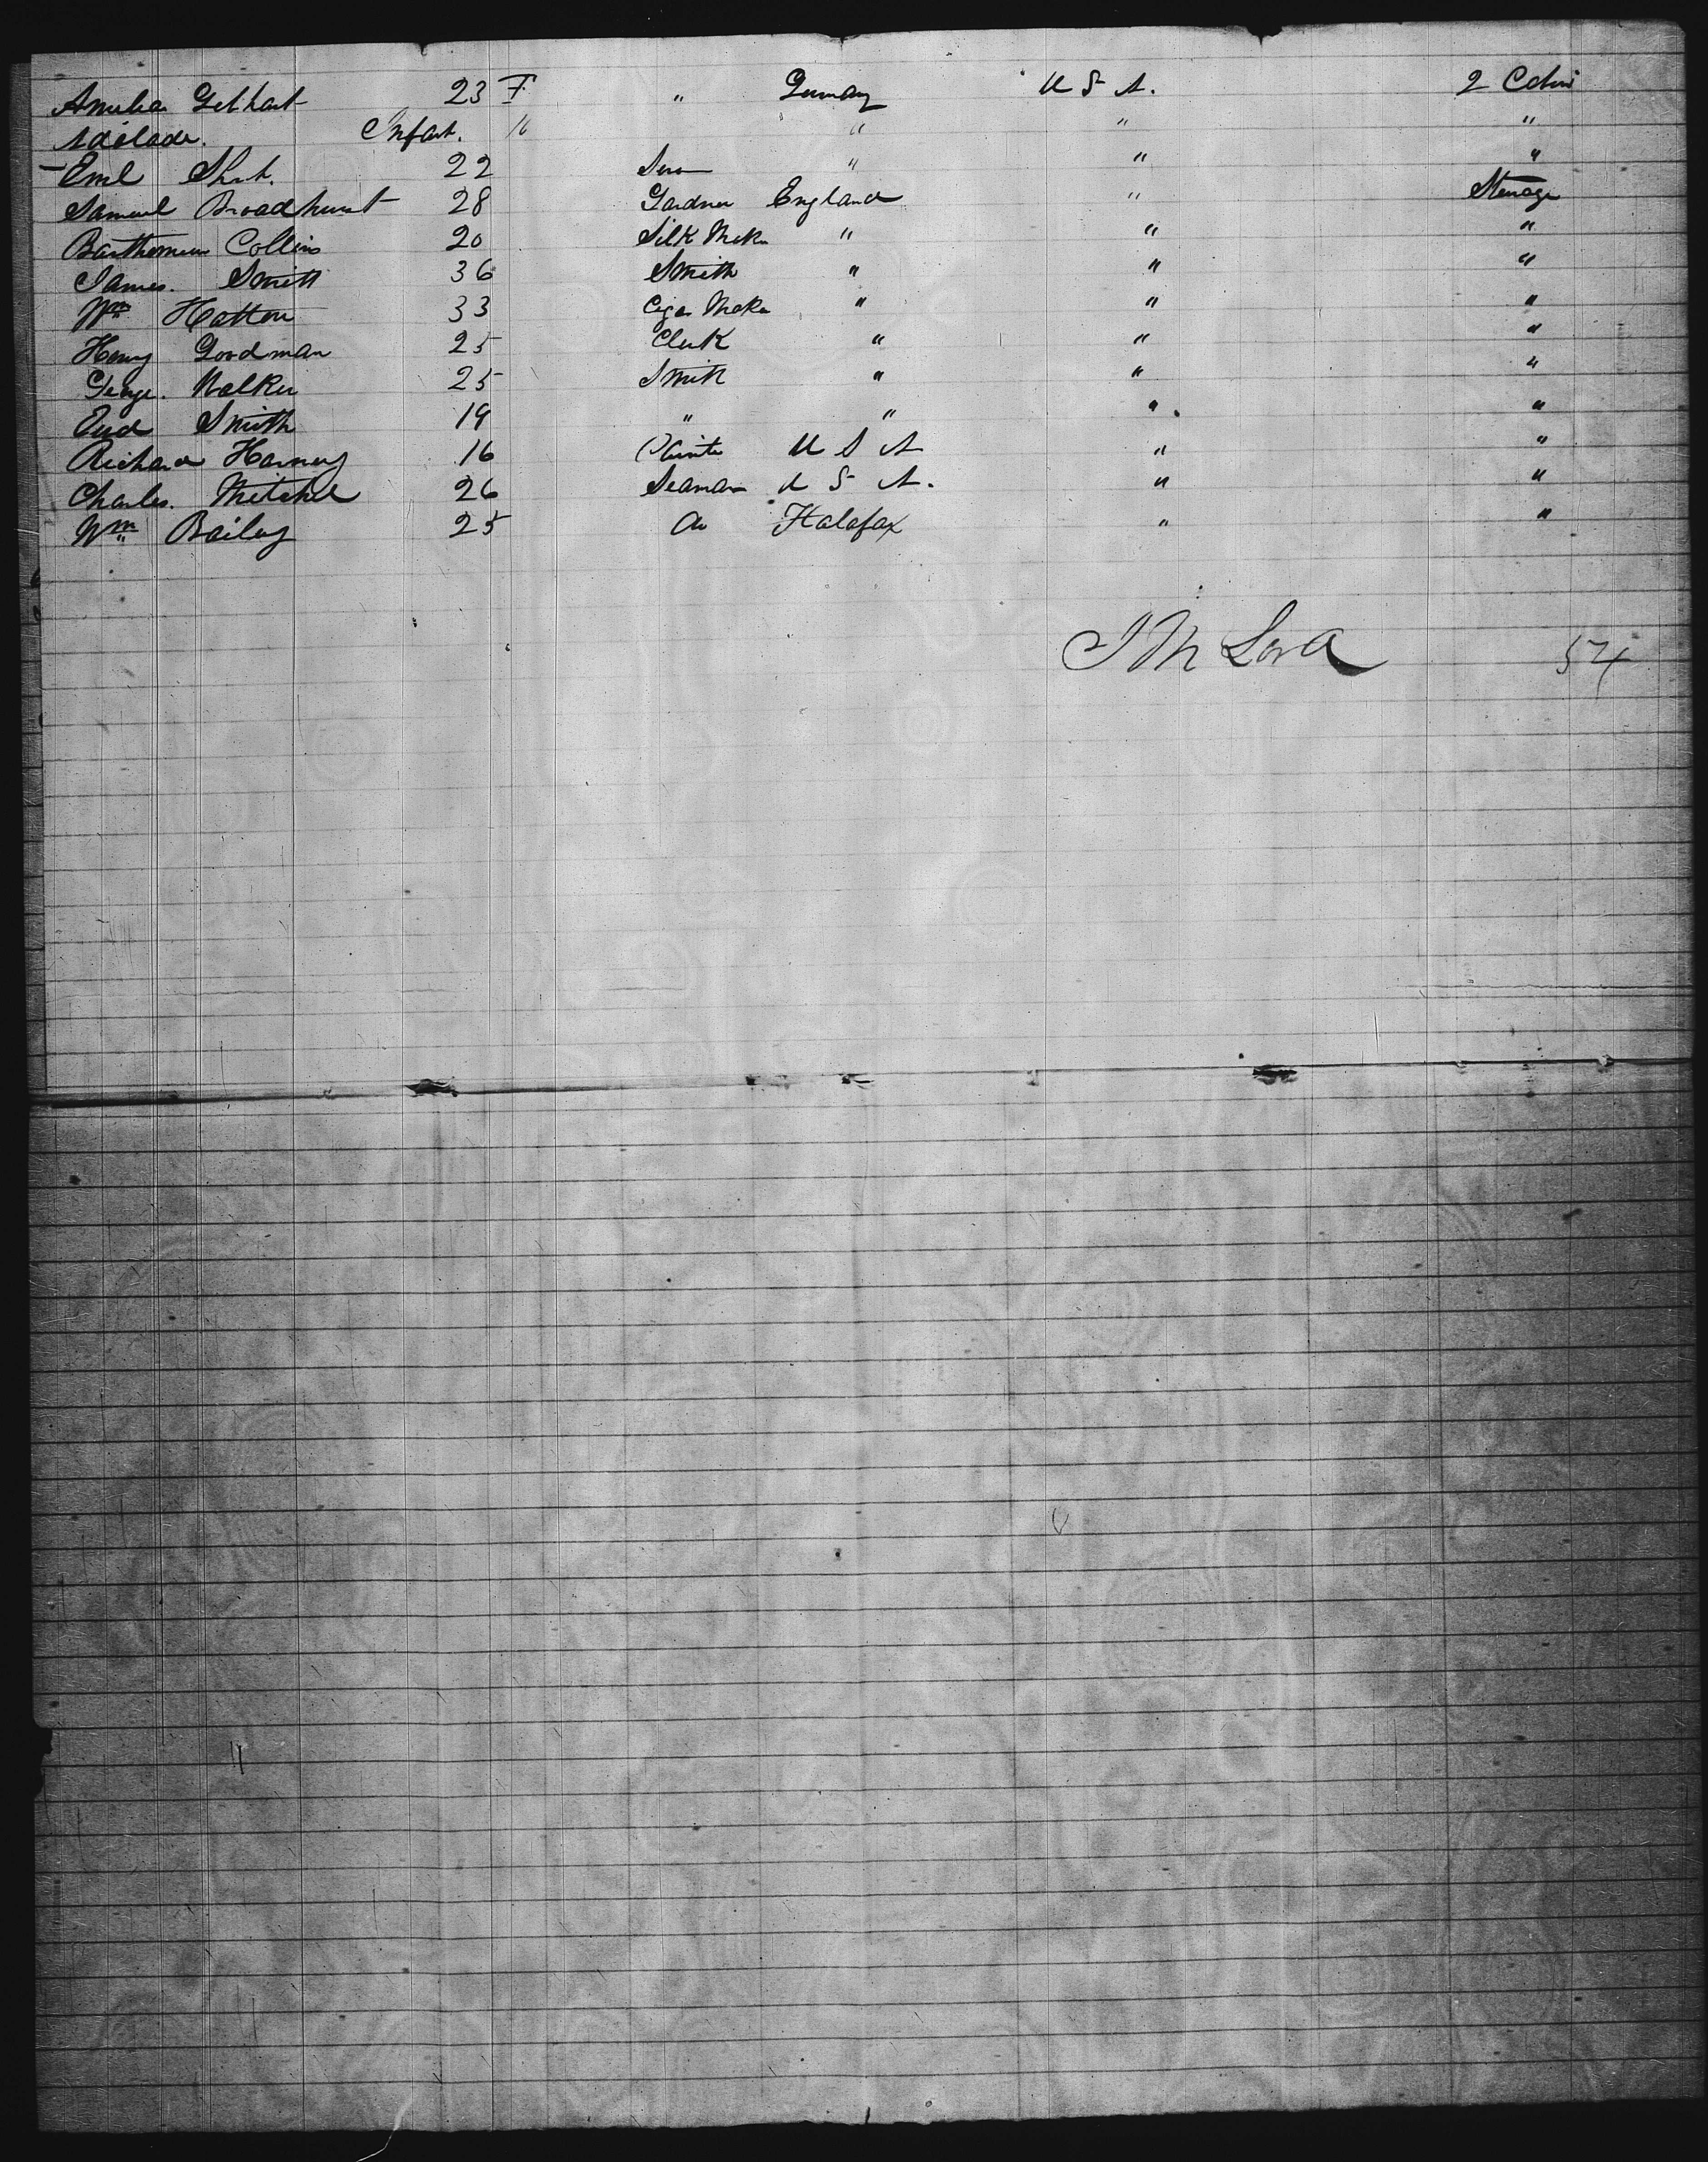 Amelia Gebhart 23 F. " Germany U S A. 2 Cabin
Adelade. Infant. " " " "
Emil 22 " " "
Samuel Broadhurst 28 Gardner England " Steerage
Collins 20 Silk Maker " " "
James. Smith 36 Smith " " "
Wm Hatton 33 Cigar Maker " " "
Henry Goodman 25 Clerk " " "
George. Walker 25 Smith " " "
Smith 19 " " " "
Richard Harvey 16 U S A " "
Charles. Mitchel 26 Seaman U S A. " "
Wm Bailey 25 Do Halafax " "
54